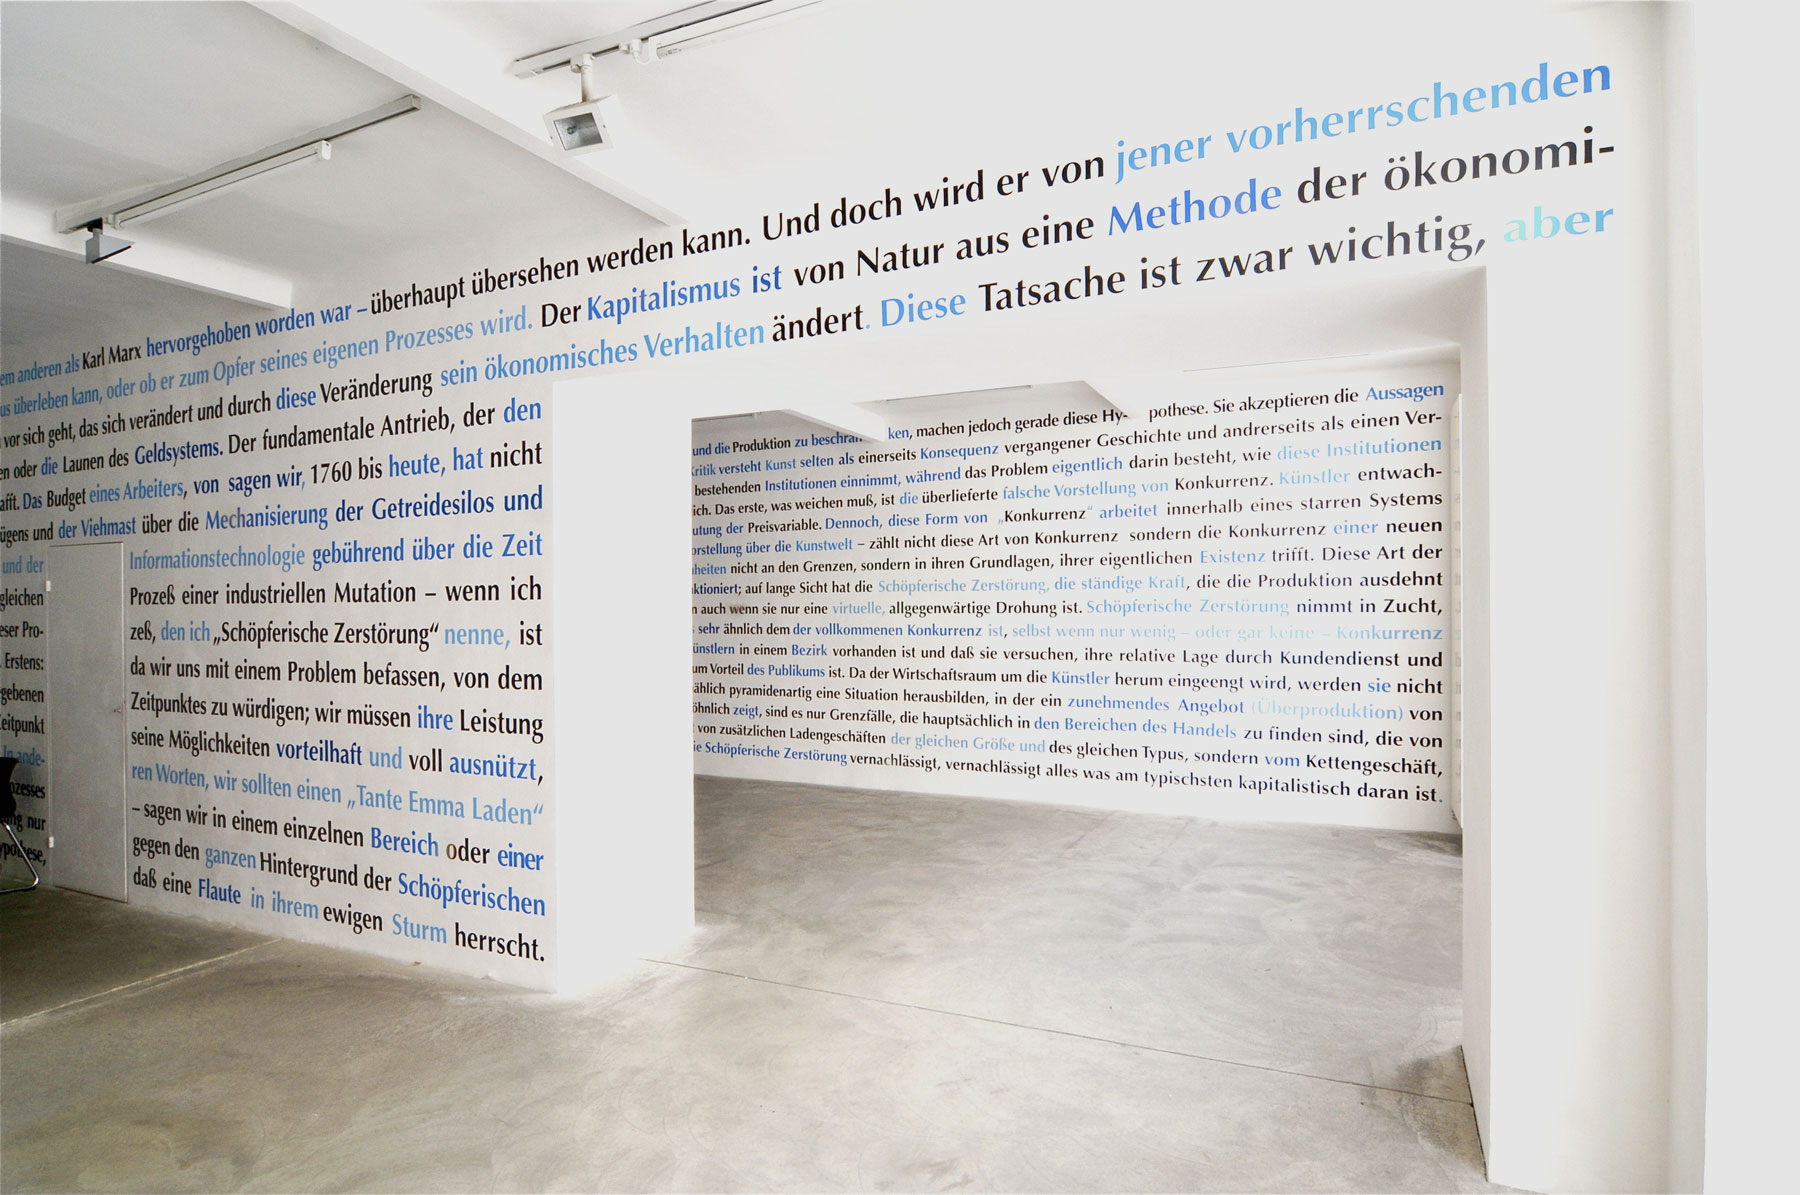 em anderen als Karl Marx hervorgehoben worden war – überhaupt übersehen werden kann. Und doch wird er von jener vorherrschenden
us überleben kann, oder ob er zum Opfer seines eigenen Prozesses wird. Der Kapitalismus ist von Natur aus eine Methode der ökonomi-
vor sich geht, das sich verändert und durch diese Veränderung sein ökonomisches Verhalten ändert. Diese Tatsache ist zwar wichtig, aber
en oder die Launen des Geldsystems. Der fundamentale Antrieb, der den
afft. Das Budget eines Arbeiters, von sagen wir, 1760 bis heute, hat nicht
ügens und der Viehmast über die Mechanisierung der Getreidesilos und
und der Informationstechnologie gebührend über die Zeit
gleichen Prozeß einer industriellen Mutation – wenn ich
eser Pro- zeß, den ich „Schöpferische Zerstörung“ nenne, ist
Erstens: da wir uns mit einem Problem befassen, von dem
gebenen Zeitpunktes zu würdigen; wir müssen ihre Leistung
Zeitpunkt seine Möglichkeiten vorteilhaft und voll ausnützt,
In ande- ren Worten, wir sollten einen „Tante Emma Laden“
ozesses – sagen wir in einem einzelnen Bereich oder einer
nur gegen den ganzen Hintergrund der Schöpferischen
daß eine Flaute in ihrem ewigen Sturm herrscht.
und die Produktion zu beschrän- ken, machen jedoch gerade diese Hy- pothese. Sie akzeptieren die Aussagen
Kritik versteht Kunst selten als einerseits Konsequenz vergangener Geschichte und andrerseits als einen Ver-
bestehenden Institutionen einnimmt, während das Problem eigentlich darin besteht, wie diese Institutionen
ich. Das erste, was weichen muß, ist die überlieferte falsche Vorstellung von Konkurrenz. Künstler entwach-
utung der Preisvariable. Dennoch, diese Form von „Konkurrenz“ arbeitet innerhalb eines starren Systems
orstellung über die Kunstwelt – zählt nicht diese Art von Konkurrenz sondern die Konkurrenz einer neuen
heiten nicht an den Grenzen, sondern in ihren Grundlagen, ihrer eigentlichen Existenz trifft. Diese Art der
ktioniert; auf lange Sicht hat die Schöpferische Zerstörung, die ständige Kraft, die die Produktion ausdehnt
n auch wenn sie nur eine virtuelle, allgegenwärtige Drohung ist. Schöpferische Zerstörung nimmt in Zucht,
sehr ähnlich dem der vollkommenen Konkurrenz ist, selbst wenn nur wenig – oder gar keine – Konkurrenz
ünstlern in einem Bezirk vorhanden ist und daß sie versuchen, ihre relative Lage durch Kundendienst und
um Vorteil des Publikums ist. Da der Wirtschaftsraum um die Künstler herum eingeengt wird, werden sie nicht
ählich pyramidenartig eine Situation herausbilden, in der ein zunehmendes Angebot (Überproduktion) von
öhnlich zeigt, sind es nur Grenzfälle, die hauptsächlich in den Bereichen des Handels zu finden sind, die von
von zusätzlichen Ladengeschäften der gleichen Größe und des gleichen Typus, sondern vom Kettengeschäft,
ie Schöpferische Zerstörung vernachlässigt, vernachlässigt alles was am typischsten kapitalistisch daran ist.